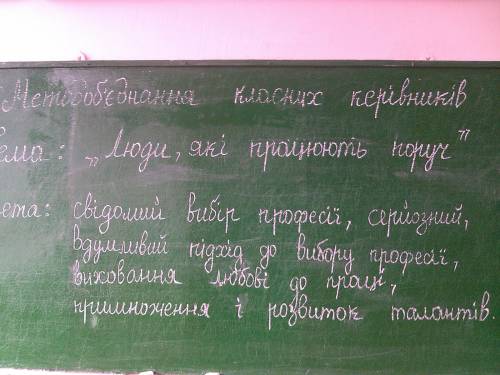 Методоб'єднання класних керівників
Тема: „Люди, які працюють поруч"
Мета: свідомий вибір професії, серйозний,
вдумливий підхід до вибору професії,
виховання любові до праці,
примноження і розвиток талантів.